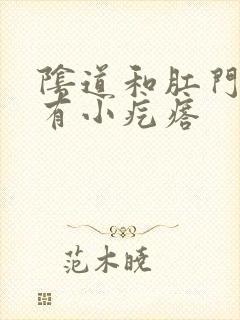 陰道和肛門
有小疙瘩
范木曉